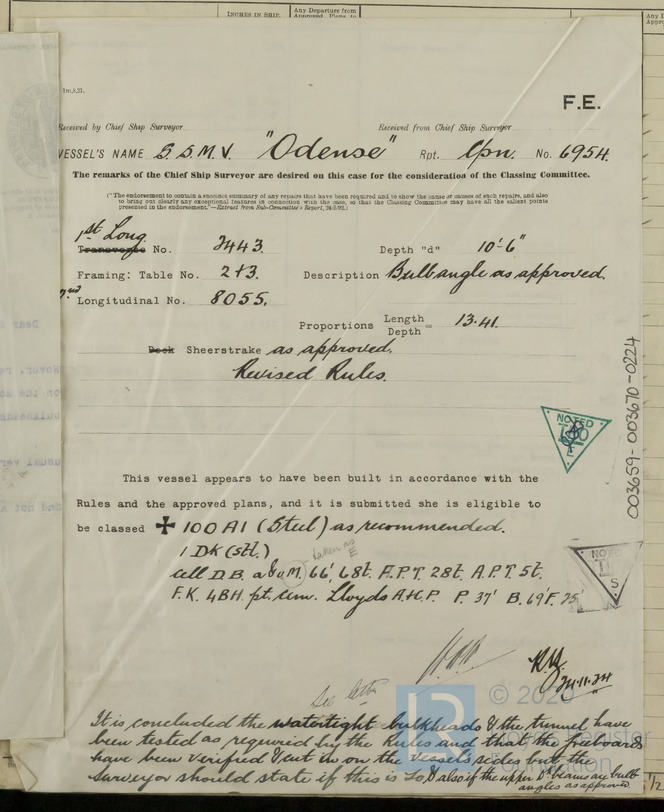 INCHES IN SHIP.
Any Departure from
Approved Plans to
1m,8,21.
F.E.
Received by Chief Ship Surveyor
Received from Chief Ship Surveyor
VESSEL'S NAME S.S.M.V. "Odense" Rpt. Cpn. No. 6954.
The remarks of the Chief Ship Surveyor are desired on this case for the consideration of the Classing Committee.
("The endorsement to contain a succinct summary of any repairs that have been required and to show the cause or causes of such repairs, and also
to bring out clearly any exceptional features in connection with the case, so that the Classing Committee may have all the salient points
presented in the endorsement."—Extract from Sub-Committee's Report,
1st Long.
Transverse No. 2443. Depth "d" 10'-6"
Framing: Table No. 2+3. Description Bulb angle as approved.
2nd Longitudinal No. 8055.
Proportions Length
Depth = 13.41.
Deck Sheerstrake as approved.
Revised Rules.
003659-003670-0224
NOTED
This vessel appears to have been built in accordance with the
Rules and the approved plans, and it is submitted she is eligible to
be classed ✠ 100 A1 (Steel) as recommended.
taken as
E
1 DK (Stl.)
cell D.B. a & u M. 66', 68t. A.P.T. 28t. A.P.T. 5t.
F.K. 4BH. pt. cem. Lloyds A.&C.P. P. 37' B. 69' F. 25'
NOTED
S
24.11.24
See letter
© 20
It is concluded the watertight bulkheads & the tunnel have
been tested as required by the Rules and that the freeboards
have been verified & cut in on the vessel's sides but the
surveyor should state if this is so, & also if the upper Dk beams are bulb
angles as approved.